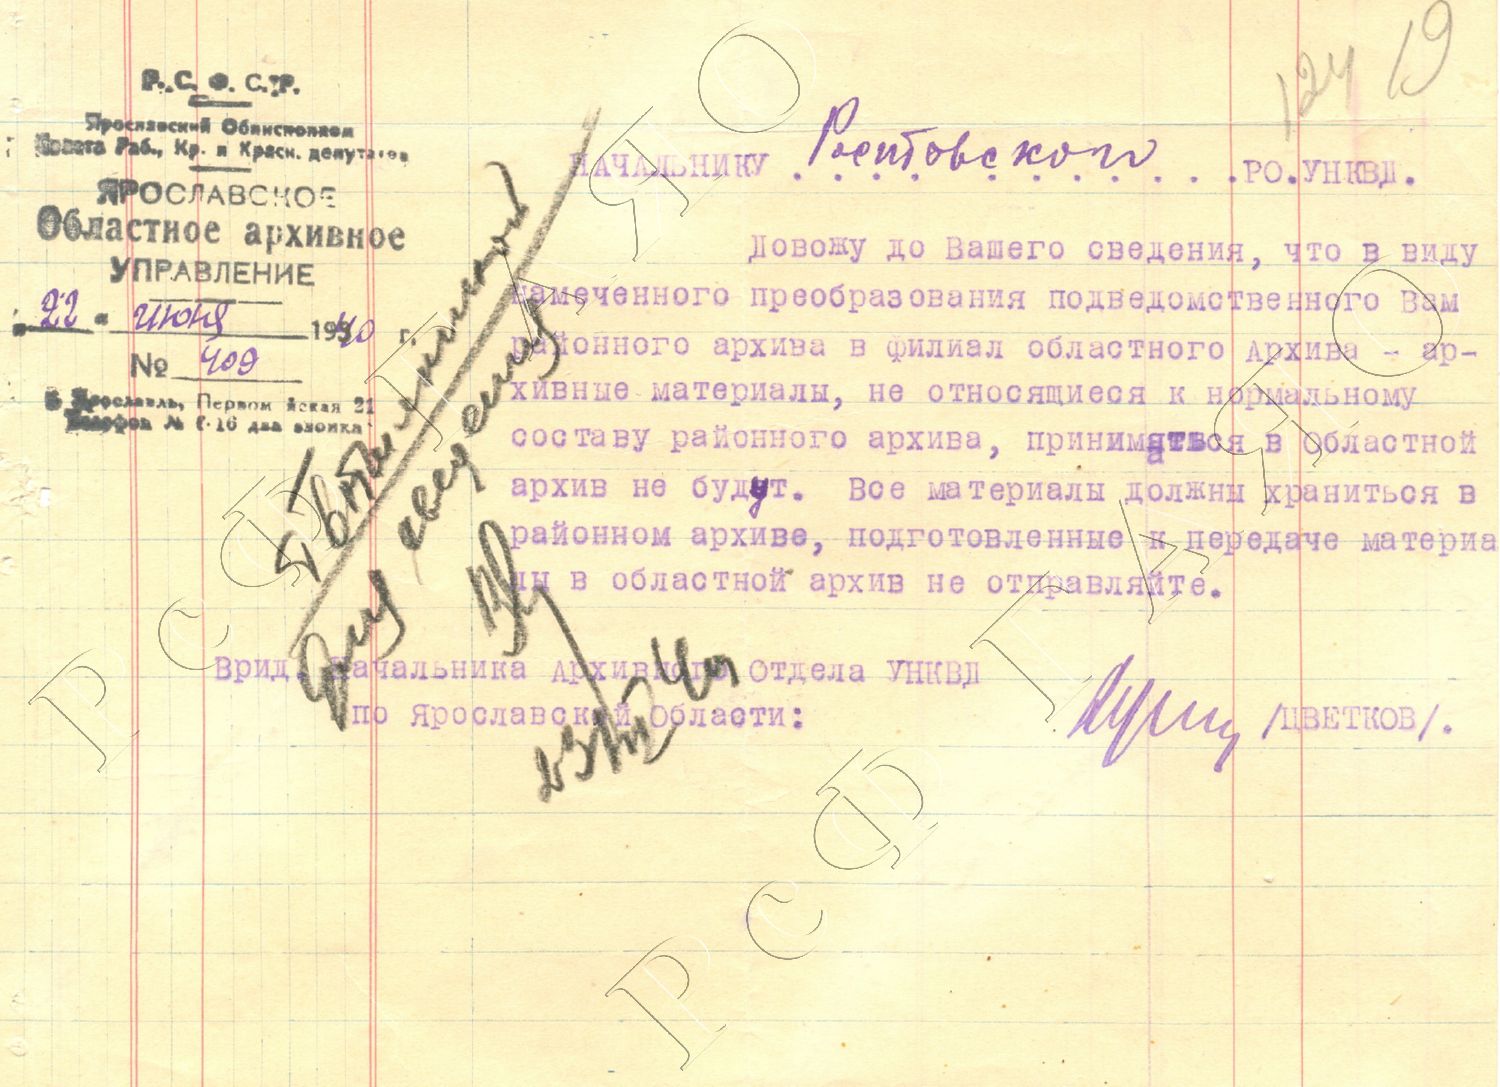 124 19
Р.С.Ф.С.Р.
Ярославский Облисполком
Совета Раб., Кр. и Красн. депутатов
ЯРОСЛАВСКОЕ
Областное архивное
УПРАВЛЕНИЕ
"22" июня 1940 г.
№ 409
г. Ярославль, Первомайская 21
Телефон № 6-16 два звонка
НАЧАЛЬНИКУ Ростовского РО.УНКВД.
Довожу до Вашего сведения, что в виду
намеченного преобразования подведомственного Вам
районного архива в филиал областного Архива - ар-
хивные материалы, не относящиеся к нормальному
составу районного архива, приниматься в Областной
архив не будут. Все материалы должны храниться в
районном архиве, подготовленные к передаче материа
лы в областной архив не отправляйте.
Врид. Начальника Архивного Отдела УНКВД
по Ярославской Области: /ЦВЕТКОВ/.
для сведения
23/VI 40
РСФ ГАЯО
РСФ ГАЯО